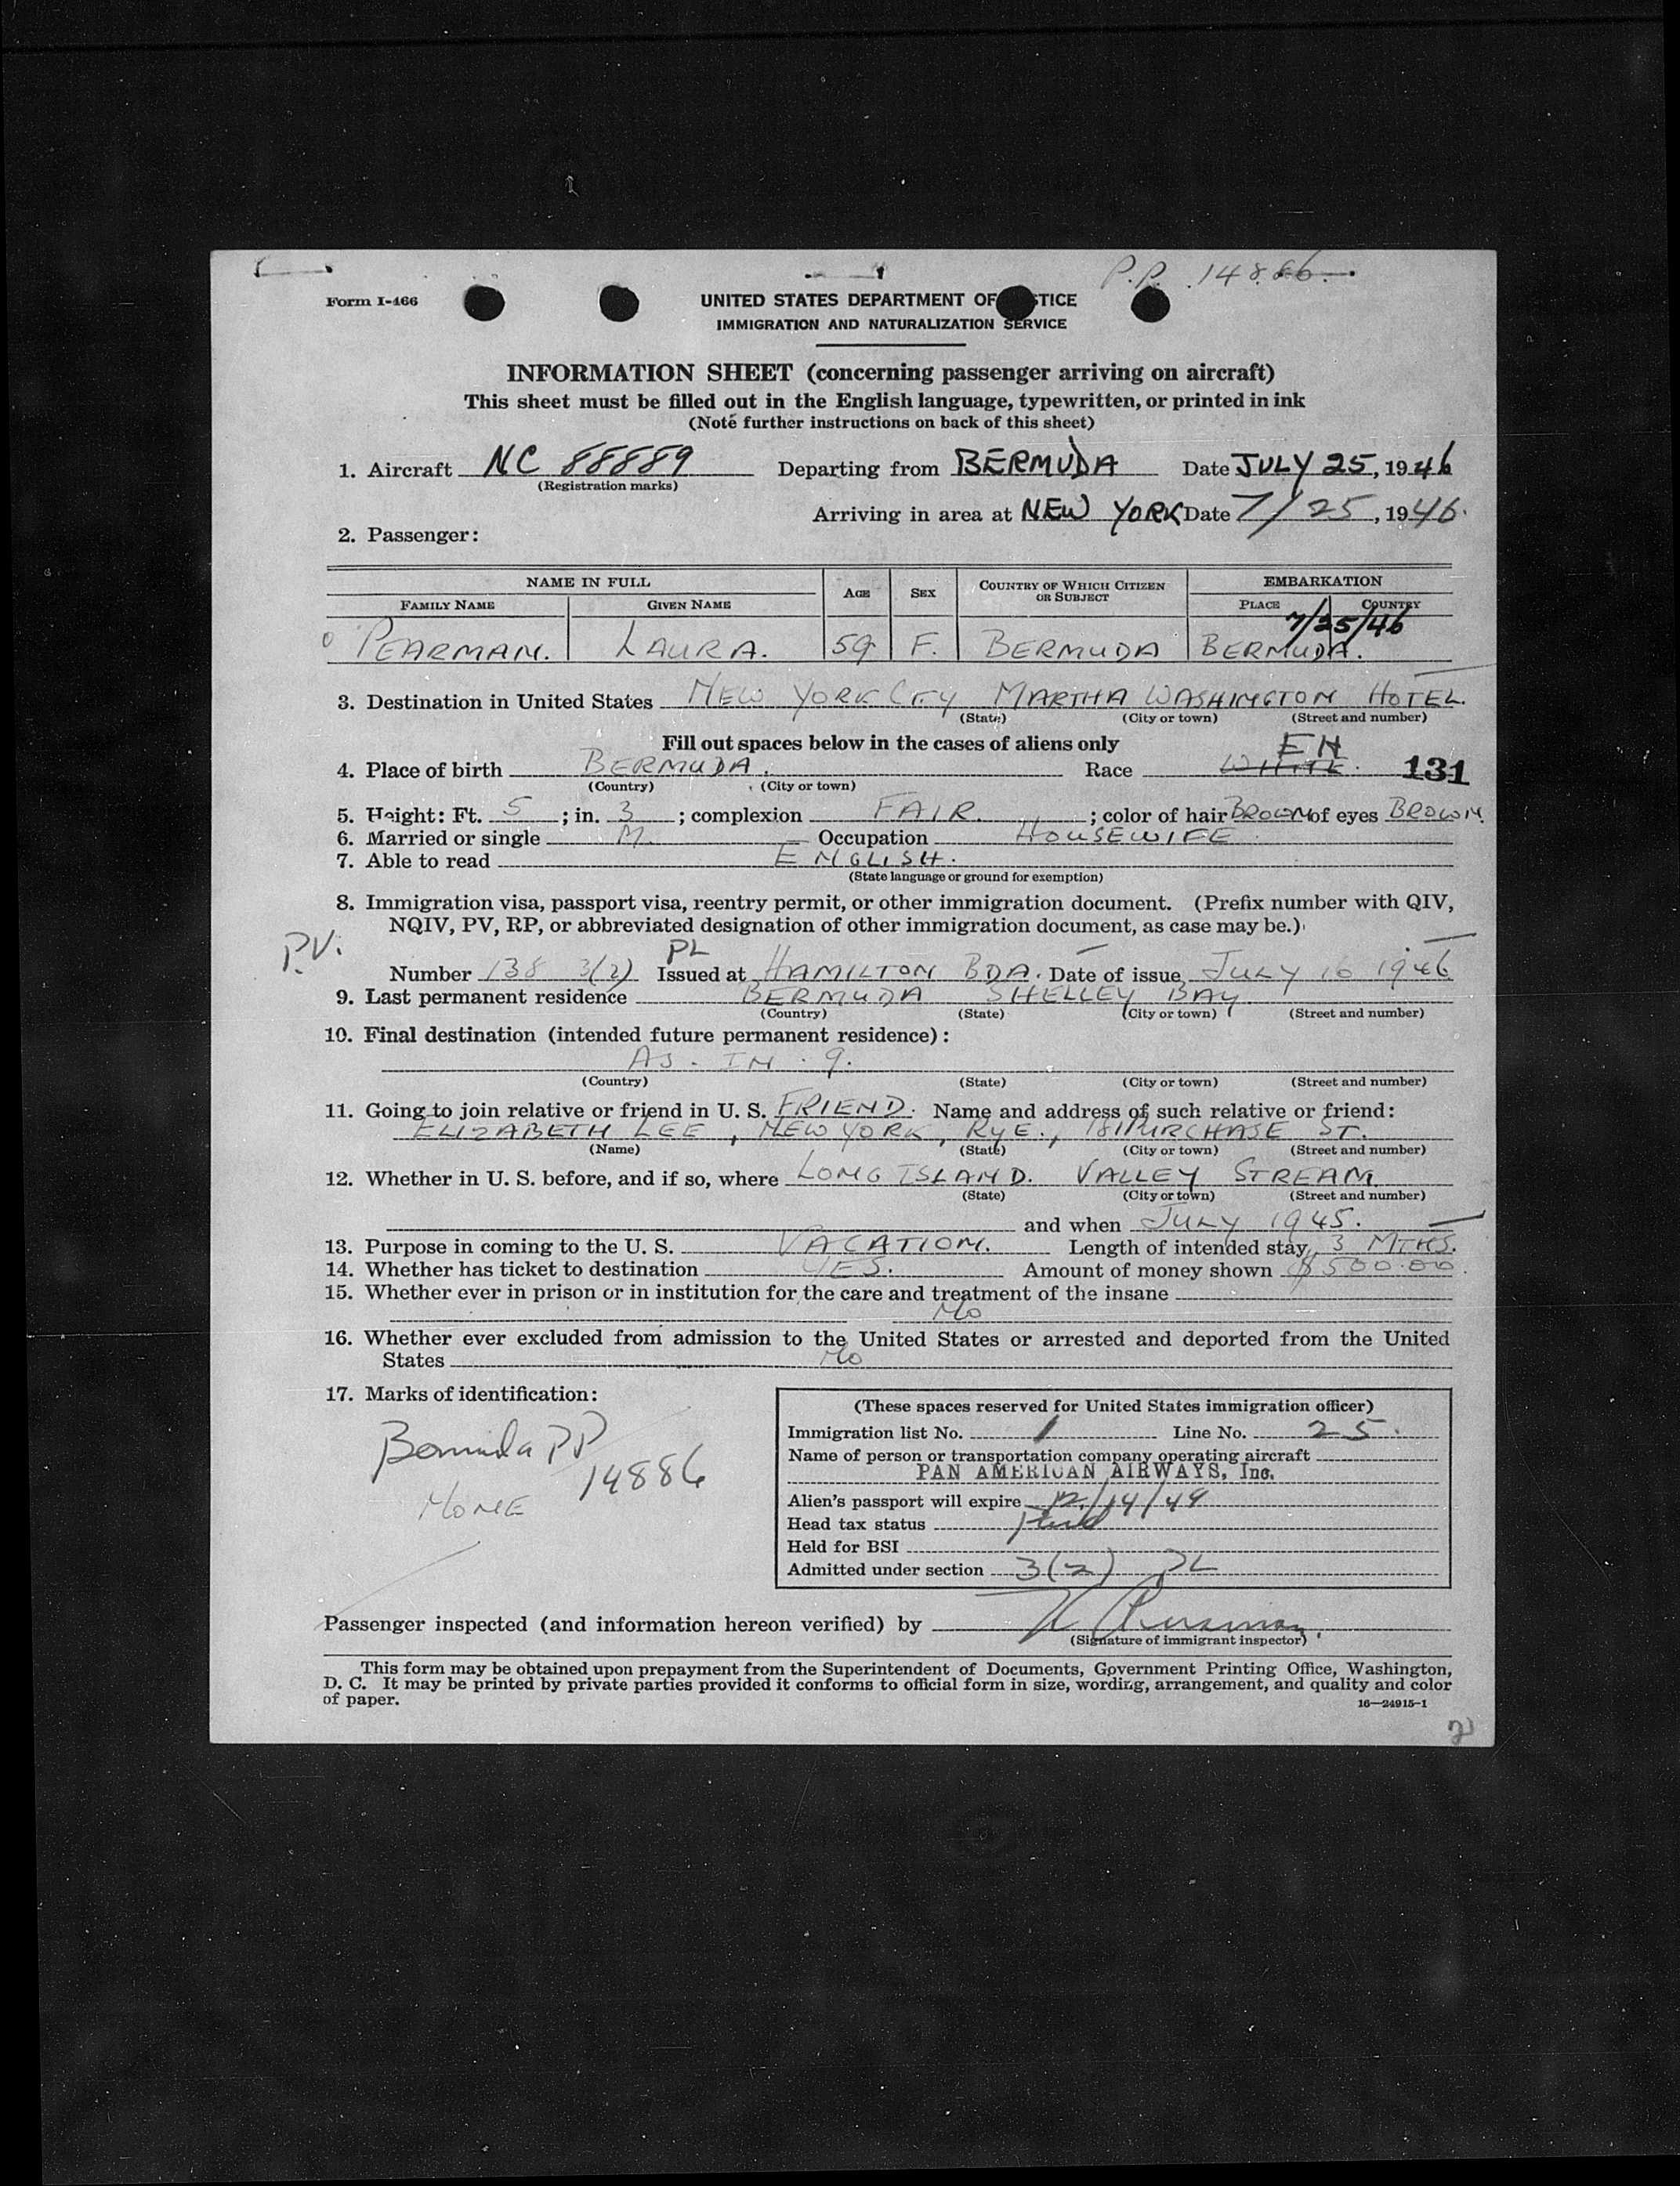 P.P. 14886.
Form I-466
UNITED STATES DEPARTMENT OF STICE
IMMIGRATION AND NATURALIZATION SERVICE
INFORMATION SHEET (concerning passenger arriving on aircraft)
This sheet must be filled out in the English language, typewritten, or printed in ink
(Note further instructions on back of this sheet)
1. Aircraft NC 88889 Departing from BERMUDA Date JULY 25, 1946
(Registration marks)
Arriving in area at NEW YORK Date 7/25, 1946.
2. Passenger:
NAME IN FULL AGE SEX COUNTRY OF WHICH CITIZEN OR SUBJECT EMBARKATION
FAMILY NAME GIVEN NAME PLACE COUNTRY
7/25/46
PEARMAN. LAURA. 59 F. BERMUDA BERMUDA.
3. Destination in United States NEW YORK CITY MARTHA WASHINGTON HOTEL.
(State) (City or town) (Street and number)
Fill out spaces below in the cases of aliens only
EN
4. Place of birth BERMUDA. Race WHITE. 131
(Country) (City or town)
5. Height: Ft. 5; in. 3; complexion FAIR.; color of hair BROWN of eyes BROWN.
6. Married or single M. Occupation HOUSEWIFE
7. Able to read ENGLISH.
(State language or ground for exemption)
8. Immigration visa, passport visa, reentry permit, or other immigration document. (Prefix number with QIV,
NQIV, PV, RP, or abbreviated designation of other immigration document, as case may be.)
P.V. PL
Number 138 3(2) Issued at HAMILTON BDA. Date of issue JULY 16 1946
9. Last permanent residence BERMUDA SHELLEY BAY.
(Country) (State) (City or town) (Street and number)
10. Final destination (intended future permanent residence):
AS. IN. 9.
(Country) (State) (City or town) (Street and number)
11. Going to join relative or friend in U. S. FRIEND. Name and address of such relative or friend:
ELIZABETH LEE, NEW YORK, RYE., 181 PURCHASE ST.
(Name) (State) (City or town) (Street and number)
12. Whether in U. S. before, and if so, where LONG ISLAND. VALLEY STREAM
(State) (City or town) (Street and number)
and when JULY 1945.
13. Purpose in coming to the U. S. VACATION. Length of intended stay 3 MTHS.
14. Whether has ticket to destination YES. Amount of money shown $500.00.
15. Whether ever in prison or in institution for the care and treatment of the insane
No
16. Whether ever excluded from admission to the United States or arrested and deported from the United
States No
17. Marks of identification:
Bermuda PP
14886
NONE
(These spaces reserved for United States immigration officer)
Immigration list No. 1 Line No. 25.
Name of person or transportation company operating aircraft
PAN AMERICAN AIRWAYS, Inc.
Alien's passport will expire 12/14/49
Head tax status Paid
Held for BSI
Admitted under section 3(2) PL
Passenger inspected (and information hereon verified) by
(Signature of immigrant inspector)
This form may be obtained upon prepayment from the Superintendent of Documents, Government Printing Office, Washington,
D. C. It may be printed by private parties provided it conforms to official form in size, wording, arrangement, and quality and color
of paper.
16—24915-1